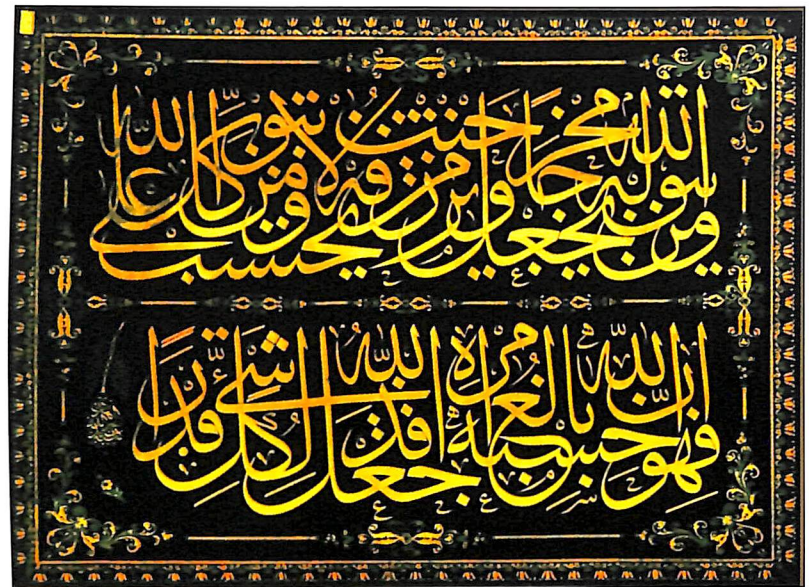 ومن يتق الله يجعل له مخرجا ويرزقه من حيث لا يحتسب ومن يتوكل على الله
فهو حسبه إن الله بالغ أمره قد جعل الله لكل شيء قدرا